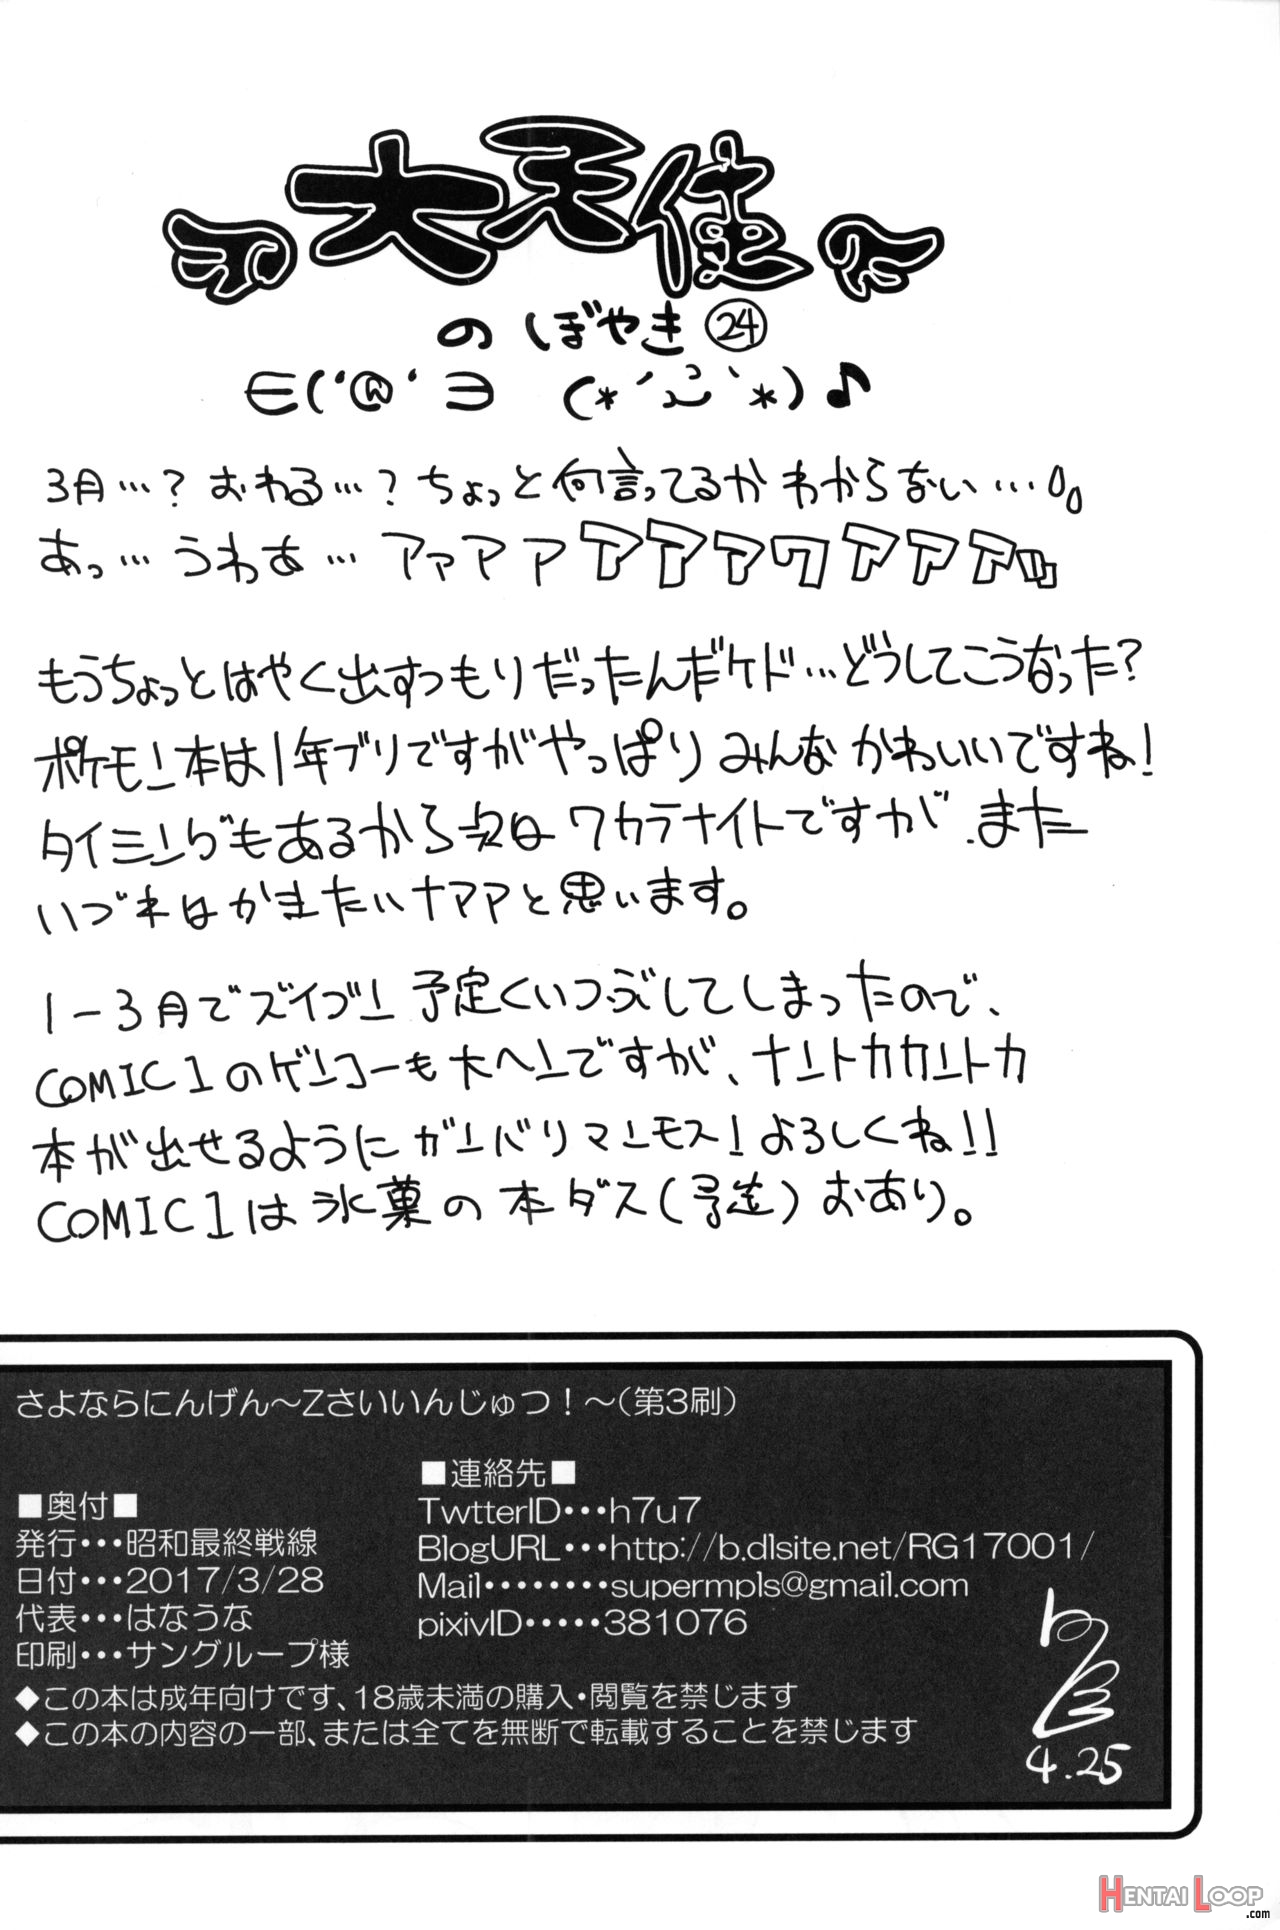 大天使
のぼやき㉔
∈('@'∋ (*´ `*)♪
3月…？おわる…？ちょっと何言ってるかわからない…
あっ…うわぁ…アァアァアアァワアアアッ
もうちょっとはやく出すつもりだったんだケド…どうしてこうなった？
ポケモン本は1年ブリですがやっぱりみんなかわいいですね！
タイミングもあるから次はワカラナイトですが、また
いづれはかきたいナアアと思います。
1-3月でズイブン予定くいつぶしてしまったので、
COMIC1のゲンコーも大ヘンですが、ナントカカントカ
本が出せるようにガンバリマンモス！よろしくね！！
COMIC1は氷菓の本ダス(予定)おあり。
さよならにんげん～Zさいいんじゅつ！～(第3刷)
■奥付■
発行・・・昭和最終戦線
日付・・・2017/3/28
代表・・・はなうな
印刷・・・サングループ様
■連絡先■
TwtterID・・・h7u7
BlogURL・・・http://b.dlsite.net/RG17001/
Mail・・・・・・・・supermpls@gmail.com
pixivID・・・・・381076
◆この本は成年向けです、18歳未満の購入・閲覧を禁じます
◆この本の内容の一部、または全てを無断で転載することを禁じます
4.25
HENTAI LOOP
.com